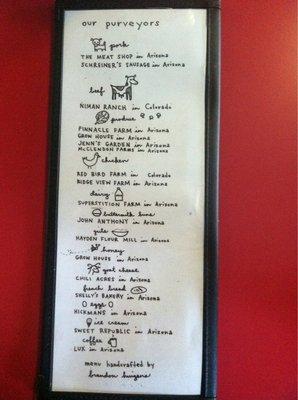 our purveyors
pork
THE MEAT SHOP in Arizona
SCHREINER'S SAUSAGE in Arizona
beef
NIMAN RANCH in Colorado
produce
PINNACLE FARM in Arizona
GROW HOUSE in Arizona
JENN'S GARDEN in Arizona
MCCLENDON FARMS in Arizona
chicken
RED BIRD FARM in Colorado
RIDGE VIEW FARM in Arizona
dairy
SUPERSTITION FARM in Arizona
buttermilk buns
JOHN ANTHONY in Arizona
grits
HAYDEN FLOUR MILL in Arizona
honey
GROW HOUSE in Arizona
goat cheese
CHILI ACRES in Arizona
french bread
SHELLY'S BAKERY in Arizona
eggs
HICKMANS in Arizona
ice cream
SWEET REPUBLIC in Arizona
coffee
LUX in Arizona
menu handcrafted by
brandon